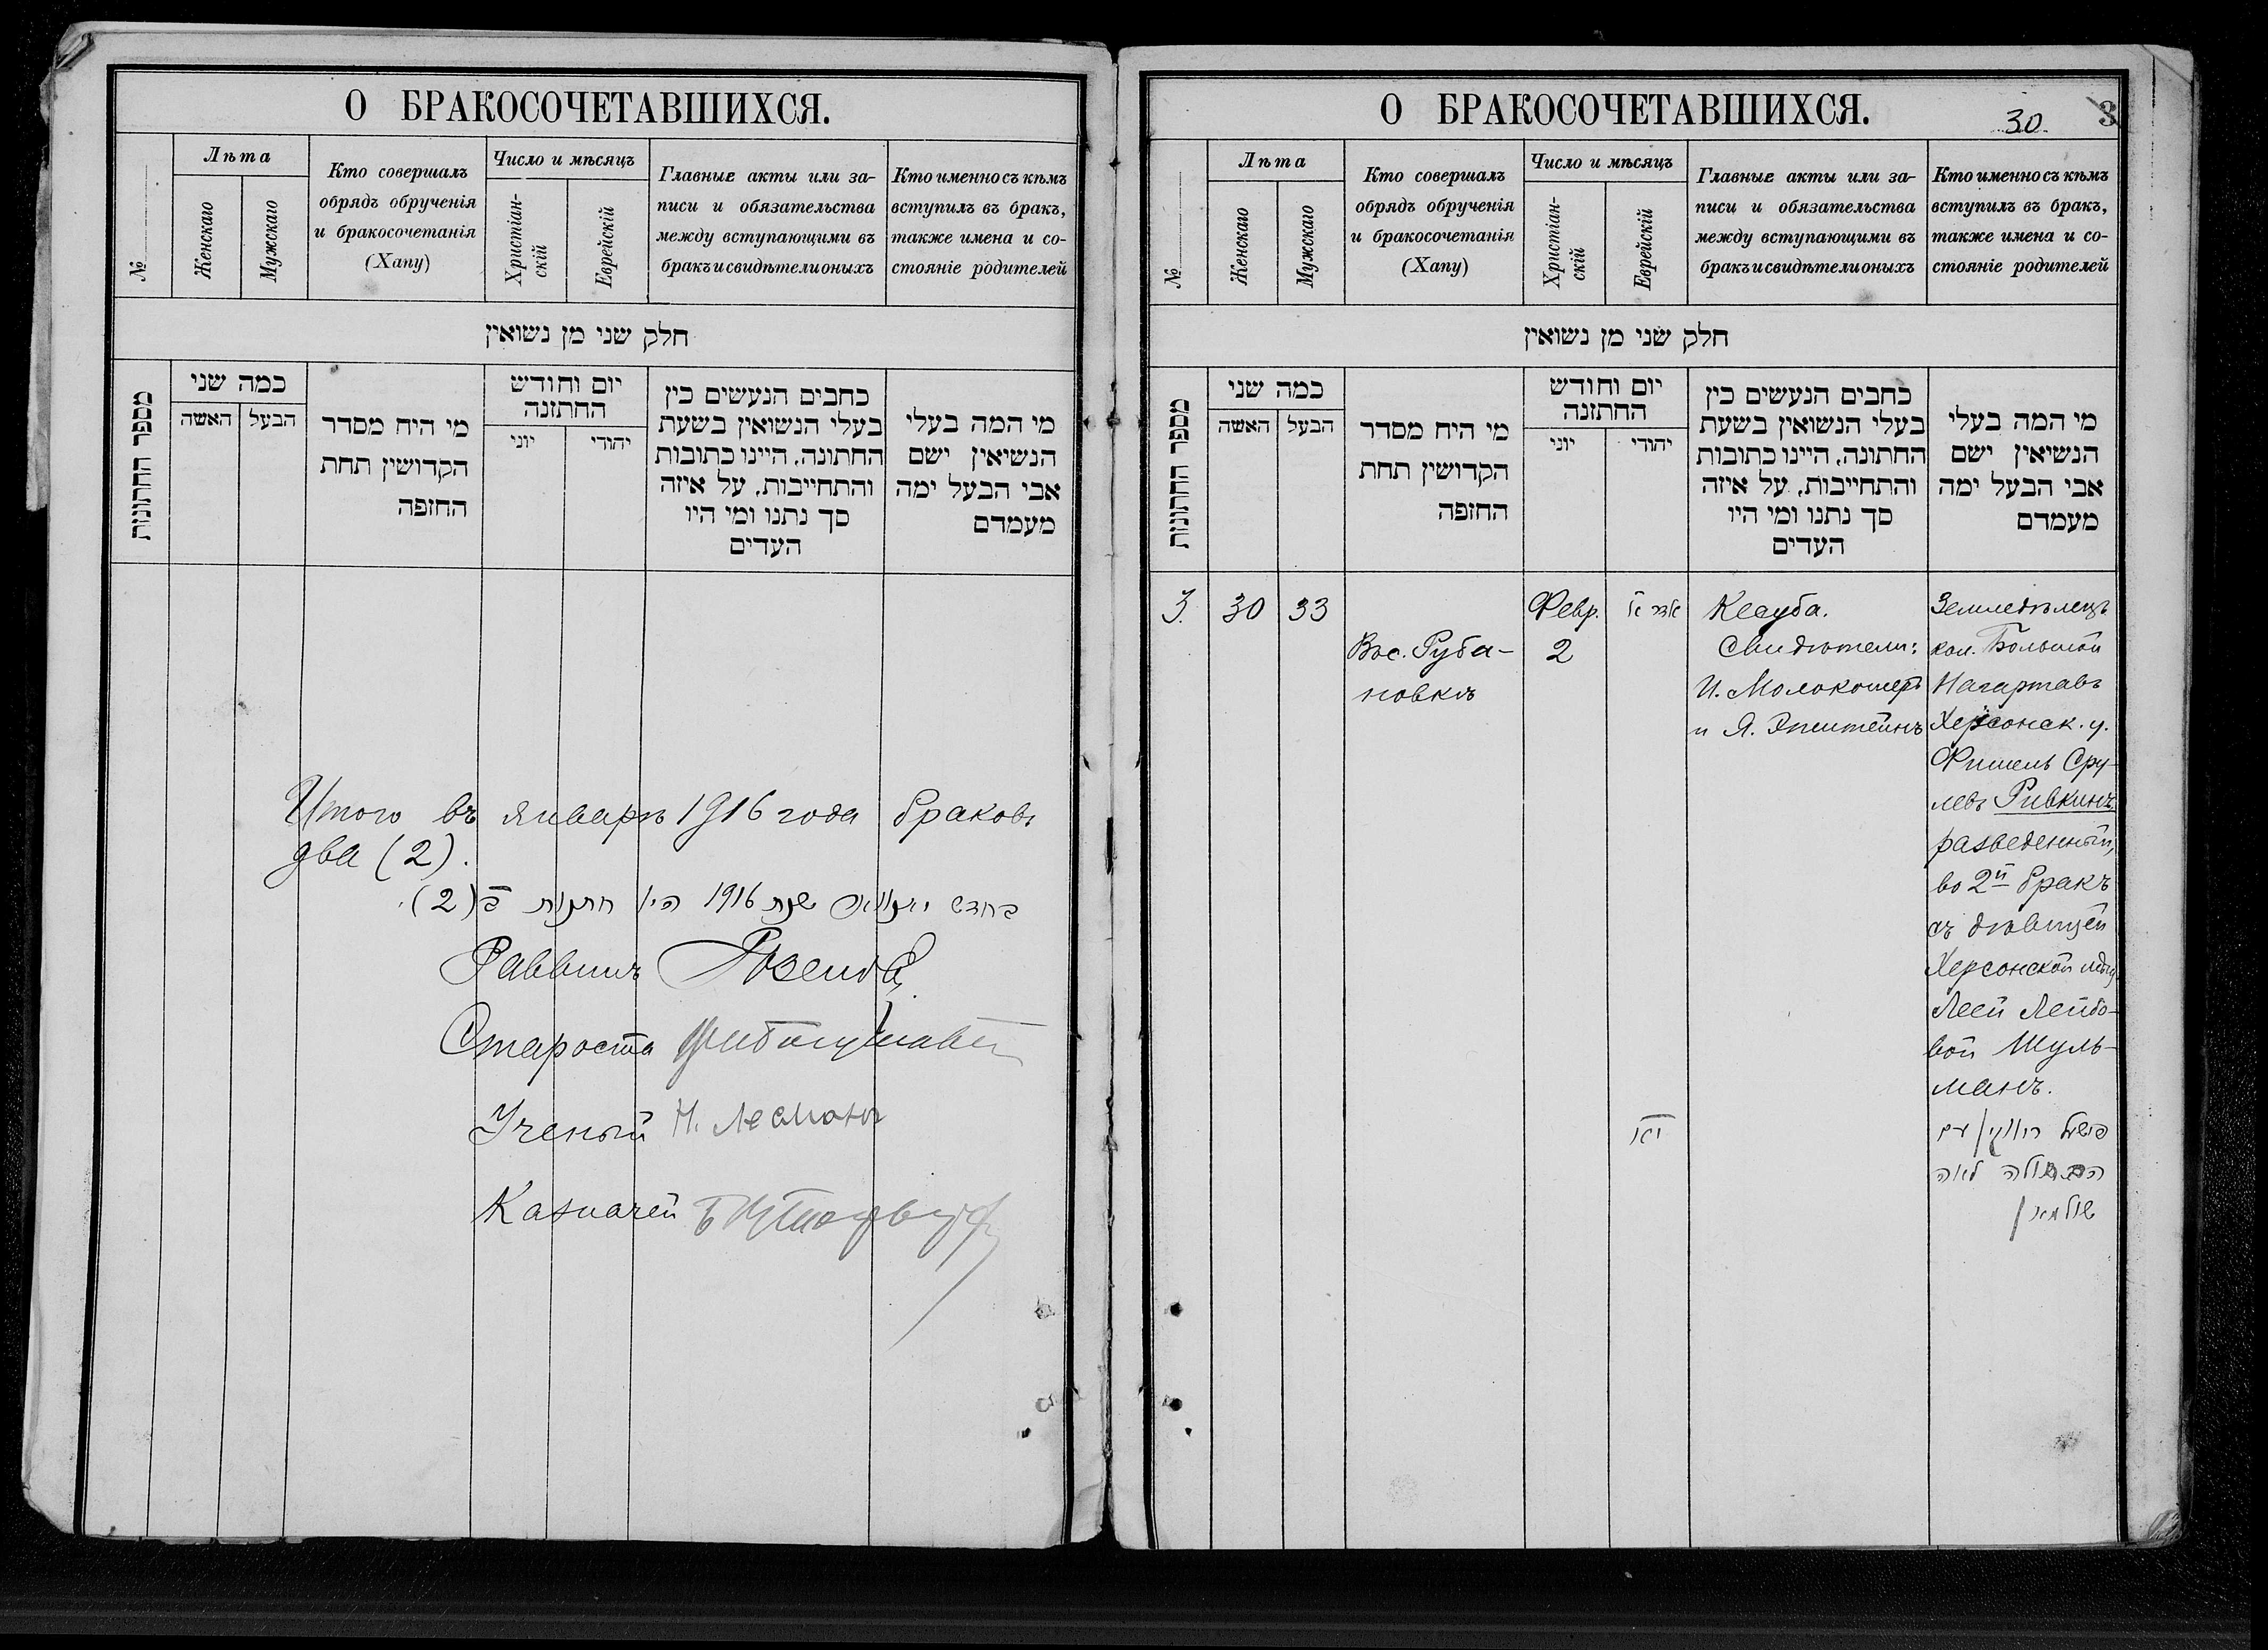 О БРАКОСОЧЕТАВШИХСЯ.
№
Лѣта
Женскаго
Мужскаго
Кто совершалъ
обрядъ обрученія
и бракосочетанія
(Хапу)
Число и мѣсяцъ
Христіан-
скій
Еврейскій
Главные акты или за-
писи и обязательства
между вступающими въ
бракъ и свидѣтели оныхъ
Кто именно съ кѣмъ
вступилъ въ бракъ,
также имена и со-
стояніе родителей
חלק שני מן נשואין
מספר החתונות
כמה שני
האשה
הבעל
מי היח מסדר
הקדושין תחת
החופה
יום וחודש
החתונה
יוני
יהודי
כחבים הנעשים כין
בעלי הנשואין בשעת
החתונה, היינו כתובות
והתחייבות, על איזה
סך נתנו ומי היו
העדים
מי המה בעלי
הנשיאין ישם
אבי הבעל ימה
מעמדם
Итого въ январѣ 1916 года браковъ
два (2).
בחדש יאנואר שנת 1916 היו חתנות ב (2).
Раввинъ
Староста
Ученый Н. Лесманъ
Казначей
О БРАКОСОЧЕТАВШИХСЯ.
30
3
№
Лѣта
Женскаго
Мужскаго
Кто совершалъ
обрядъ обрученія
и бракосочетанія
(Хапу)
Число и мѣсяцъ
Христіан-
скій
Еврейскій
Главные акты или за-
писи и обязательства
между вступающими въ
бракъ и свидѣтели оныхъ
Кто именно съ кѣмъ
вступилъ въ бракъ,
также имена и со-
стояніе родителей
חלק שני מן נשואין
מספר החתונות
כמה שני
האשה
הבעל
מי היח מסדר
הקדושין תחת
החופה
יום וחודש
החתונה
יוני
יהודי
כחבים הנעשים כין
בעלי הנשואין בשעת
החתונה, היינו כתובות
והתחייבות, על איזה
סך נתנו ומי היו
העדים
מי המה בעלי
הנשיאין ישם
אבי הבעל ימה
מעמדם
3.
30
33
Вос. Руба-
новкѣ
Февр.
2
אדר א
Кесуба.
Свидѣтели:
И.
и Я. Эпштейнъ
Земледѣлецъ
кол. Большой
Нагартавъ
Херсонск. у.
Фишель Сру-
левъ Ривкинъ,
разведенный,
во 2й бракъ
съ дѣвицей
Херсонской
Леей Лейбо-
вой Шуль-
манъ.
פישל ריווקין עם
הבתולה לאה
שולמאן